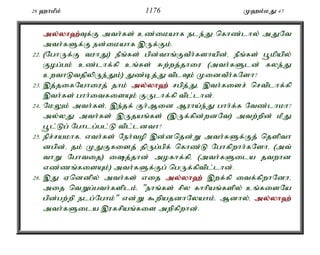 26 ஹாமீம் 1176 முஹம்மது 47
அல்லாஹ்வுக்கு அவர்கள் உண்மையாக நடந்து கொண்டால் அதுவே
அவர்களுக்கு நன்மையாக இருக்கும்.
22. (போருக்கு வராது) நீங்கள் பின்வாங்குவீர்களாயின், நீங்கள் பூமியில்
குழப்பம் உண்டாக்கி உங்கள் சுற்றத்தாரை (அவர்களுடன் கலந்து
உறவாடுவதிலிருந்தும்) துண்டித்து விடவும் முனைவீர்களோ!
23. இத்தகையோரைத் தாம் அல்லாஹ் சபித்து, இவர்களைச் செவிடாக்கி
இவர்கள் பார்வைகளையும் குருடாக்கி விட்டான்.
24. மேலும் அவர்கள், இந்தக் குர்ஆனை ஆராய்ந்து பார்க்க வேண்டாமா?
அல்லது அவர்கள் இருதயங்கள் (இருக்கின்றனவே) அவற்றின் மீது
பூட்டுப் போடப்பட்டு விட்டனவா?
25. நிச்சயமாக, எவர்கள் நேர்வழி இன்னதென்று அவர்களுக்குத் தெளிவா
னபின், தம் முதுகுகளைத் திருப்பிக் கொண்டு போகிறார்களோ, (அவ்
வாறு போவதை) ஷைத்தான் அழகாக்கி, (அவர்களுடைய தவறான
எண்ணங்களையும்) அவர்களுக்குப் பெருக்கிவிட்டான்.
26. இது ஏனெனில் அவர்கள் எதை அல்லாஹ் இறக்கி வைக்கிறானோ,
அதை வெறுப்பவர்களிடம், "நாங்கள் சில காரியங்களில் உங்களையே
பின்பற்றி நடப்போம்" என்று கூறியதனாலேயாம். ஆனால், அல்லாஹ்
அவர்களுடைய இரகசியங்களை அறிகிறான்.